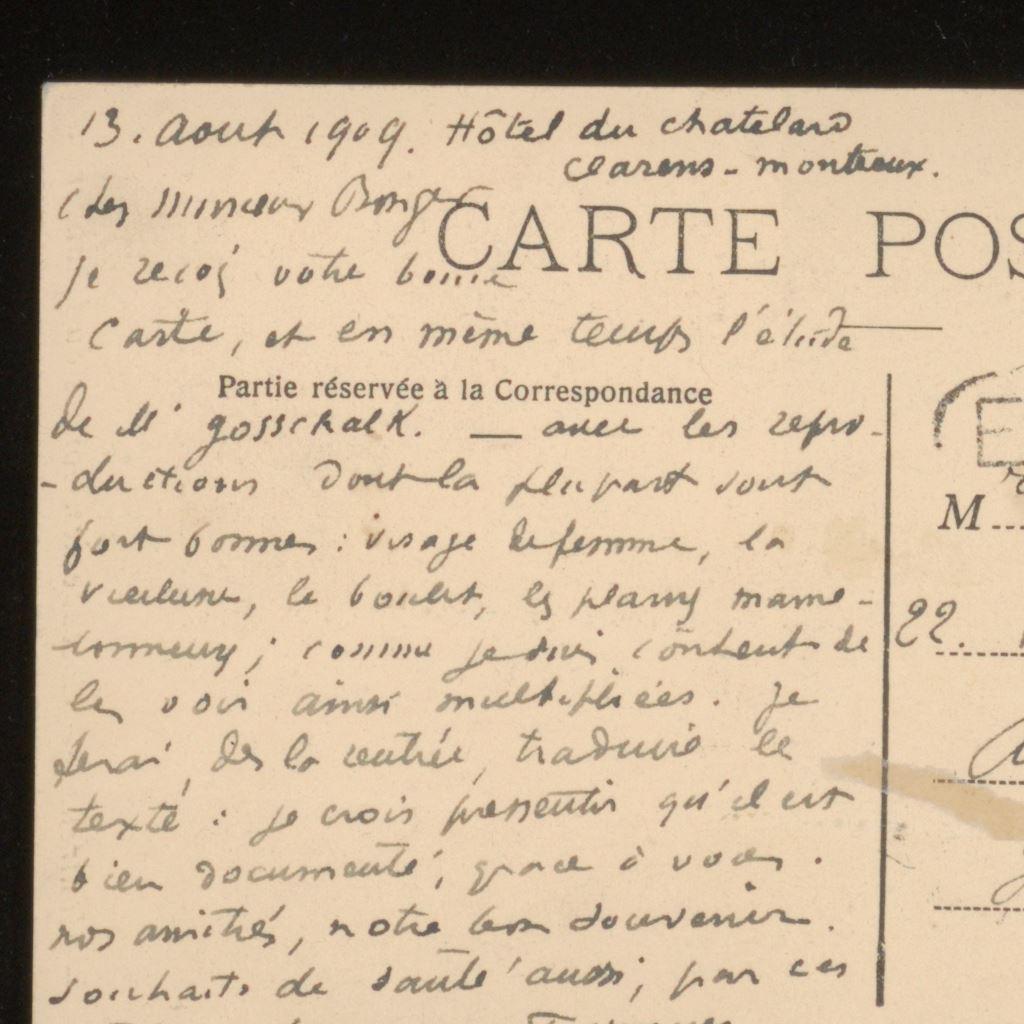 13. Aout 1909. Hôtel du chatelard
Clarens - montreux.
Cher Monsieur Bonger
CARTE POS
je reçois votre bonne
Carte, et en même temps l'étude
Partie réservée à la Correspondance
de Mr gosschalk. — avec les repro-
-ductions dont la plupart sont
fort bonnes : visage de femme, la
vieilleuse, le boulet, les plans mame-
lonneux ; comme je suis content de
les voir ainsi multipliées. je
ferai, dès la rentrée, traduire le
texte : je crois pressentir qu'il est
bien documenté, grace à vous.
nos amitiés, notre bon souvenir.
souhaits de santé aussi, par ces
M
22.